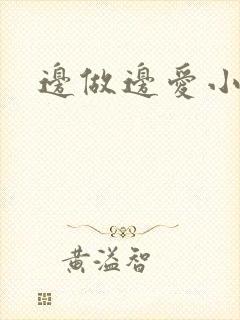 邊做邊愛小
黄溢智